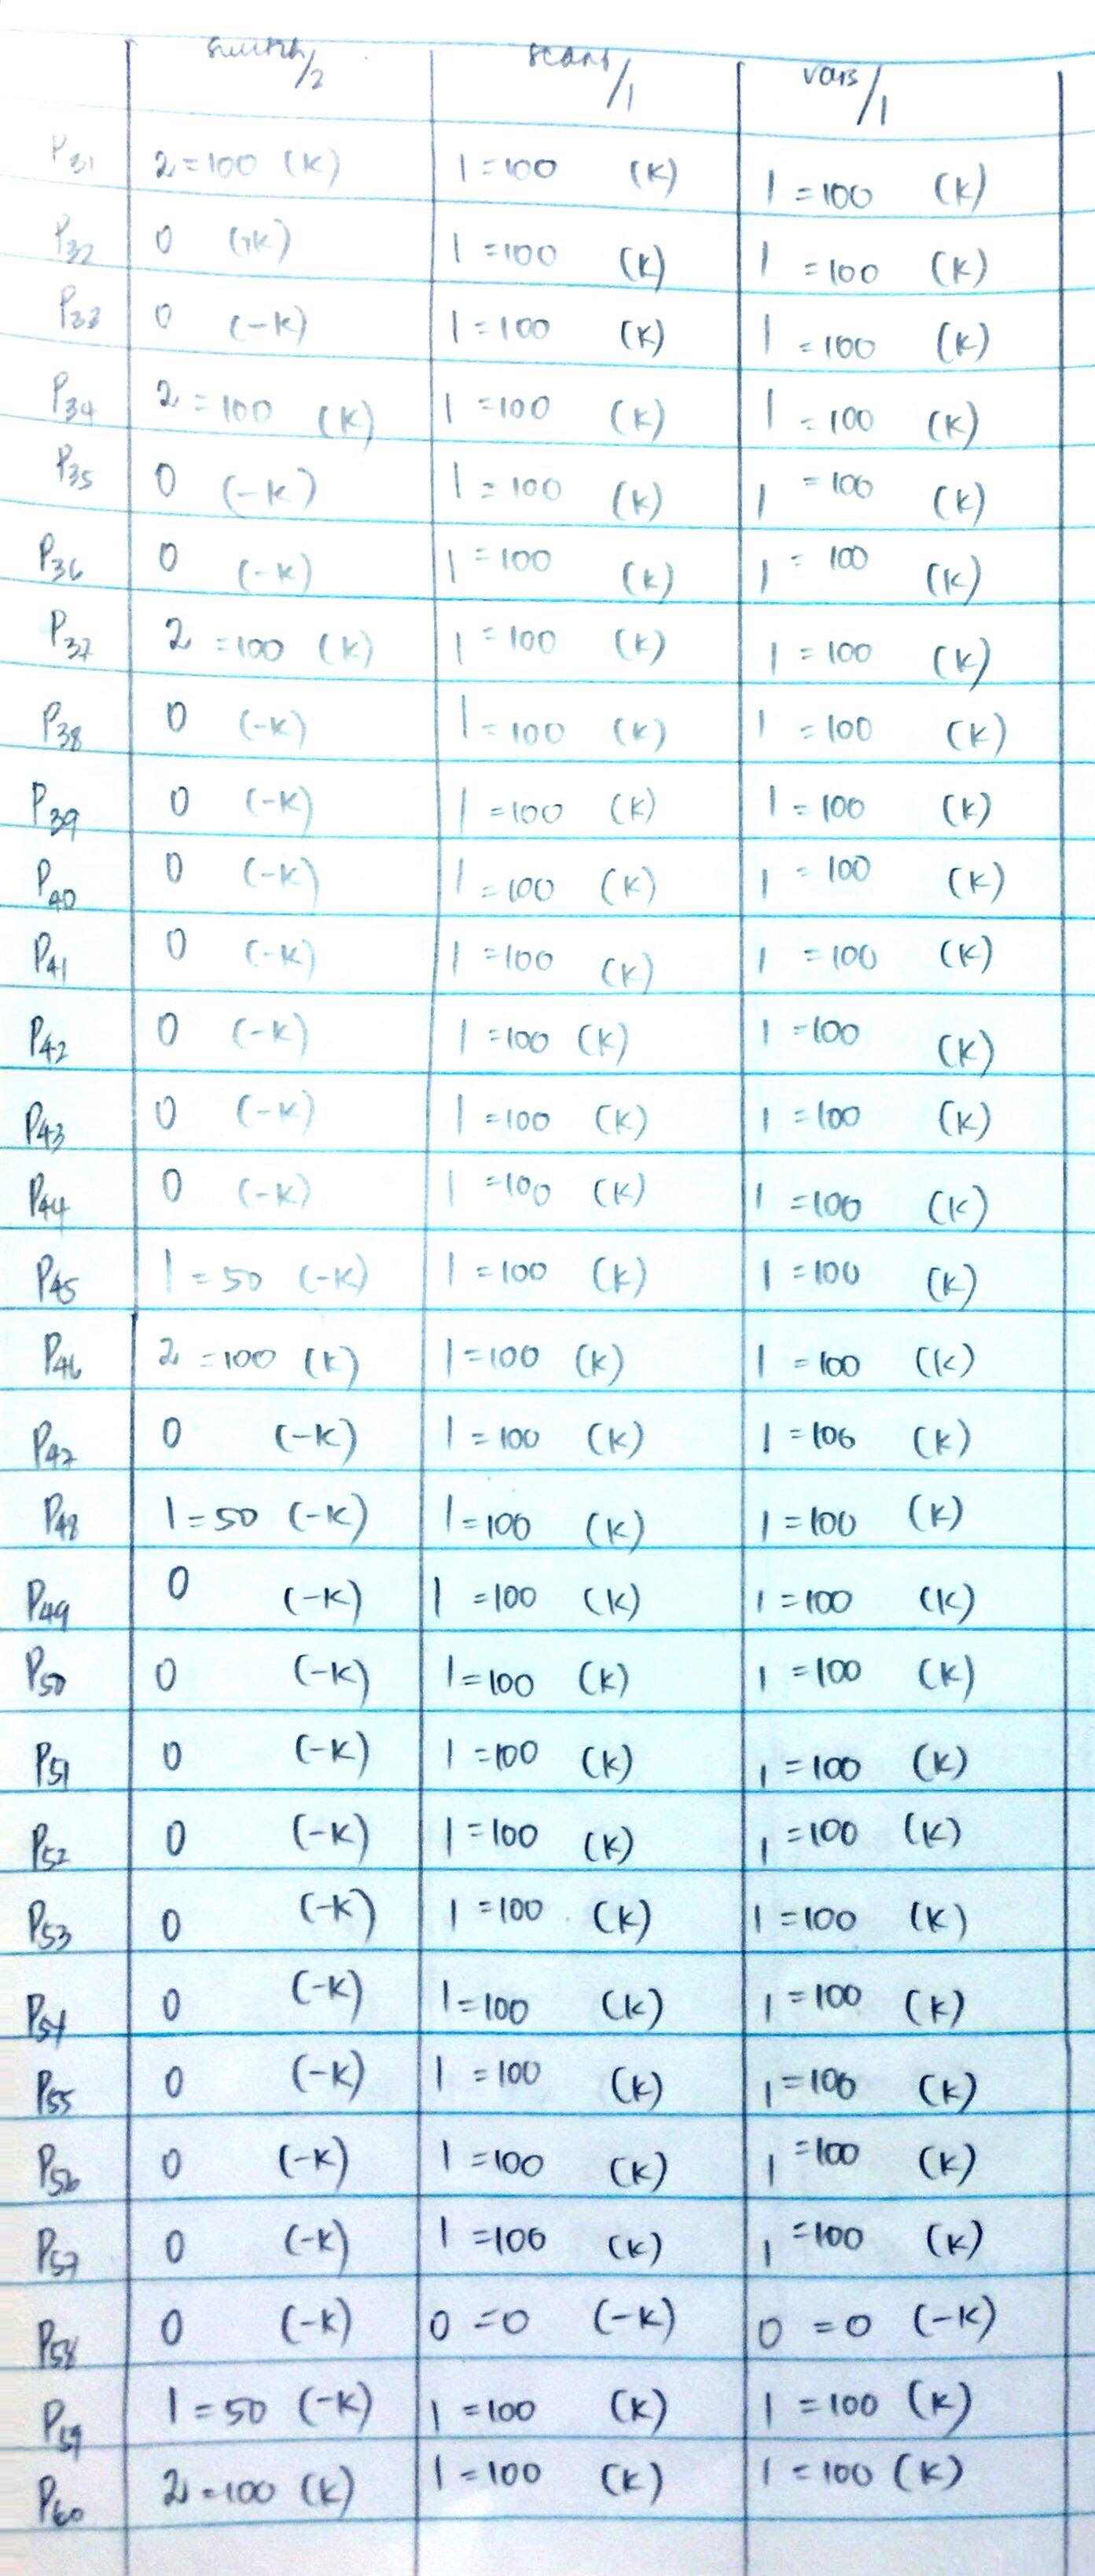 switch/2 scans/1 vars/1
P31 2=100 (K) 1=100 (K) 1=100 (K)
P32 0 (-K) 1=100 (K) 1=100 (K)
P33 0 (-K) 1=100 (K) 1=100 (K)
P34 2=100 (K) 1=100 (K) 1=100 (K)
P35 0 (-K) 1=100 (K) 1=100 (K)
P36 0 (-K) 1=100 (K) 1=100 (K)
P37 2=100 (K) 1=100 (K) 1=100 (K)
P38 0 (-K) 1=100 (K) 1=100 (K)
P39 0 (-K) 1=100 (K) 1=100 (K)
P40 0 (-K) 1=100 (K) 1=100 (K)
P41 0 (-K) 1=100 (K) 1=100 (K)
P42 0 (-K) 1=100 (K) 1=100 (K)
P43 0 (-K) 1=100 (K) 1=100 (K)
P44 0 (-K) 1=100 (K) 1=100 (K)
P45 1=50 (-K) 1=100 (K) 1=100 (K)
P46 2=100 (K) 1=100 (K) 1=100 (K)
P47 0 (-K) 1=100 (K) 1=100 (K)
P48 1=50 (-K) 1=100 (K) 1=100 (K)
P49 0 (-K) 1=100 (K) 1=100 (K)
P50 0 (-K) 1=100 (K) 1=100 (K)
P51 0 (-K) 1=100 (K) 1=100 (K)
P52 0 (-K) 1=100 (K) 1=100 (K)
P53 0 (-K) 1=100 (K) 1=100 (K)
P54 0 (-K) 1=100 (K) 1=100 (K)
P55 0 (-K) 1=100 (K) 1=100 (K)
P56 0 (-K) 1=100 (K) 1=100 (K)
P57 0 (-K) 1=100 (K) 1=100 (K)
P58 0 (-K) 0=0 (-K) 0=0 (-K)
P59 1=50 (-K) 1=100 (K) 1=100 (K)
P60 2=100 (K) 1=100 (K) 1=100 (K)